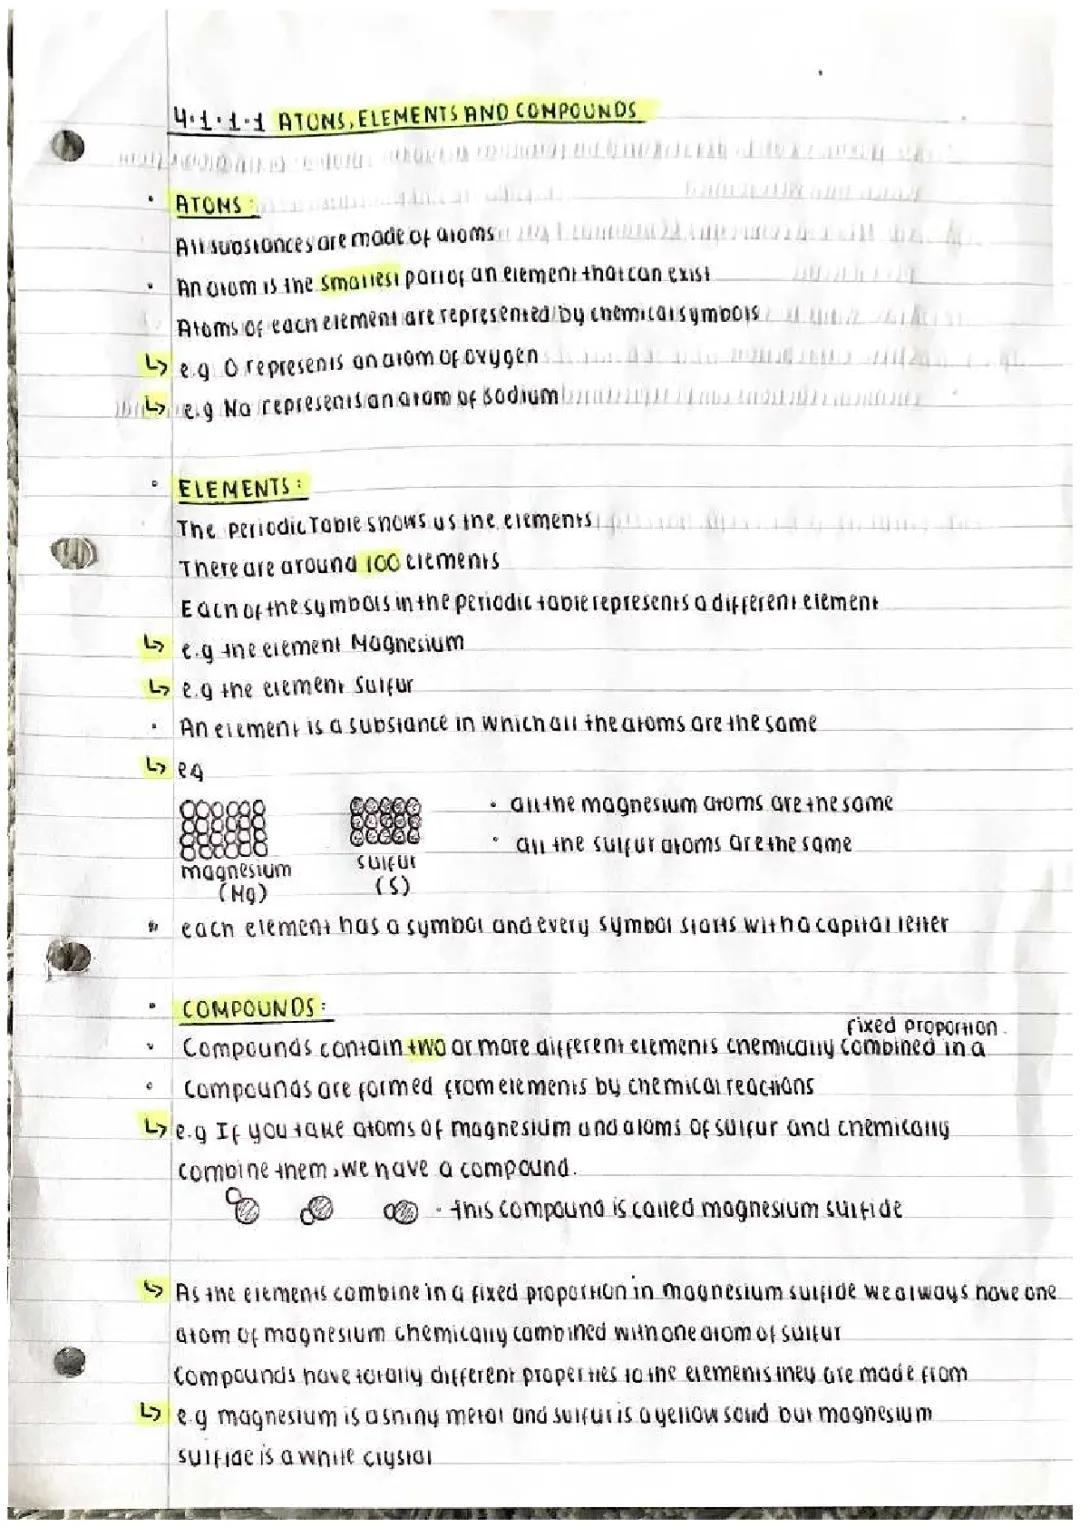 4.1.1.1 ATOMS, ELEMENTS AND COMPOUNDS
• ATOMS:
All substances are made of atoms
• An atom is the smallest part of an element that can exist
Atoms of each element are represented by chemical symbols
↳ e.g O represents an atom of oxygen
↳ e.g Na represents an atom of Sodium
• ELEMENTS:
The Periodic Table shows us the elements
There are around 100 elements
Each of the symbols in the periodic table represents a different element
↳ e.g the element Magnesium
↳ e.g the element Sulfur
• An element is a substance in which all the atoms are the same
↳ eg
magnesium
(Mg)
sulfur
(S)
• all the magnesium atoms are the same
• all the sulfur atoms are the same
• each element has a symbol and every symbol starts with a capital letter
• COMPOUNDS:
fixed proportion.
• Compounds contain two or more different elements chemically combined in a
• Compounds are formed from elements by chemical reactions
↳ e.g If you take atoms of magnesium and atoms of sulfur and chemically
combine them, we have a compound.
• this compound is called magnesium sulfide
↳ As the elements combine in a fixed proportion in magnesium sulfide we always have one
atom of magnesium chemically combined with one atom of sulfur
Compounds have totally different properties to the elements they are made from
↳ e.g magnesium is a shiny metal and sulfur is a yellow solid but magnesium
sulfide is a white crystal